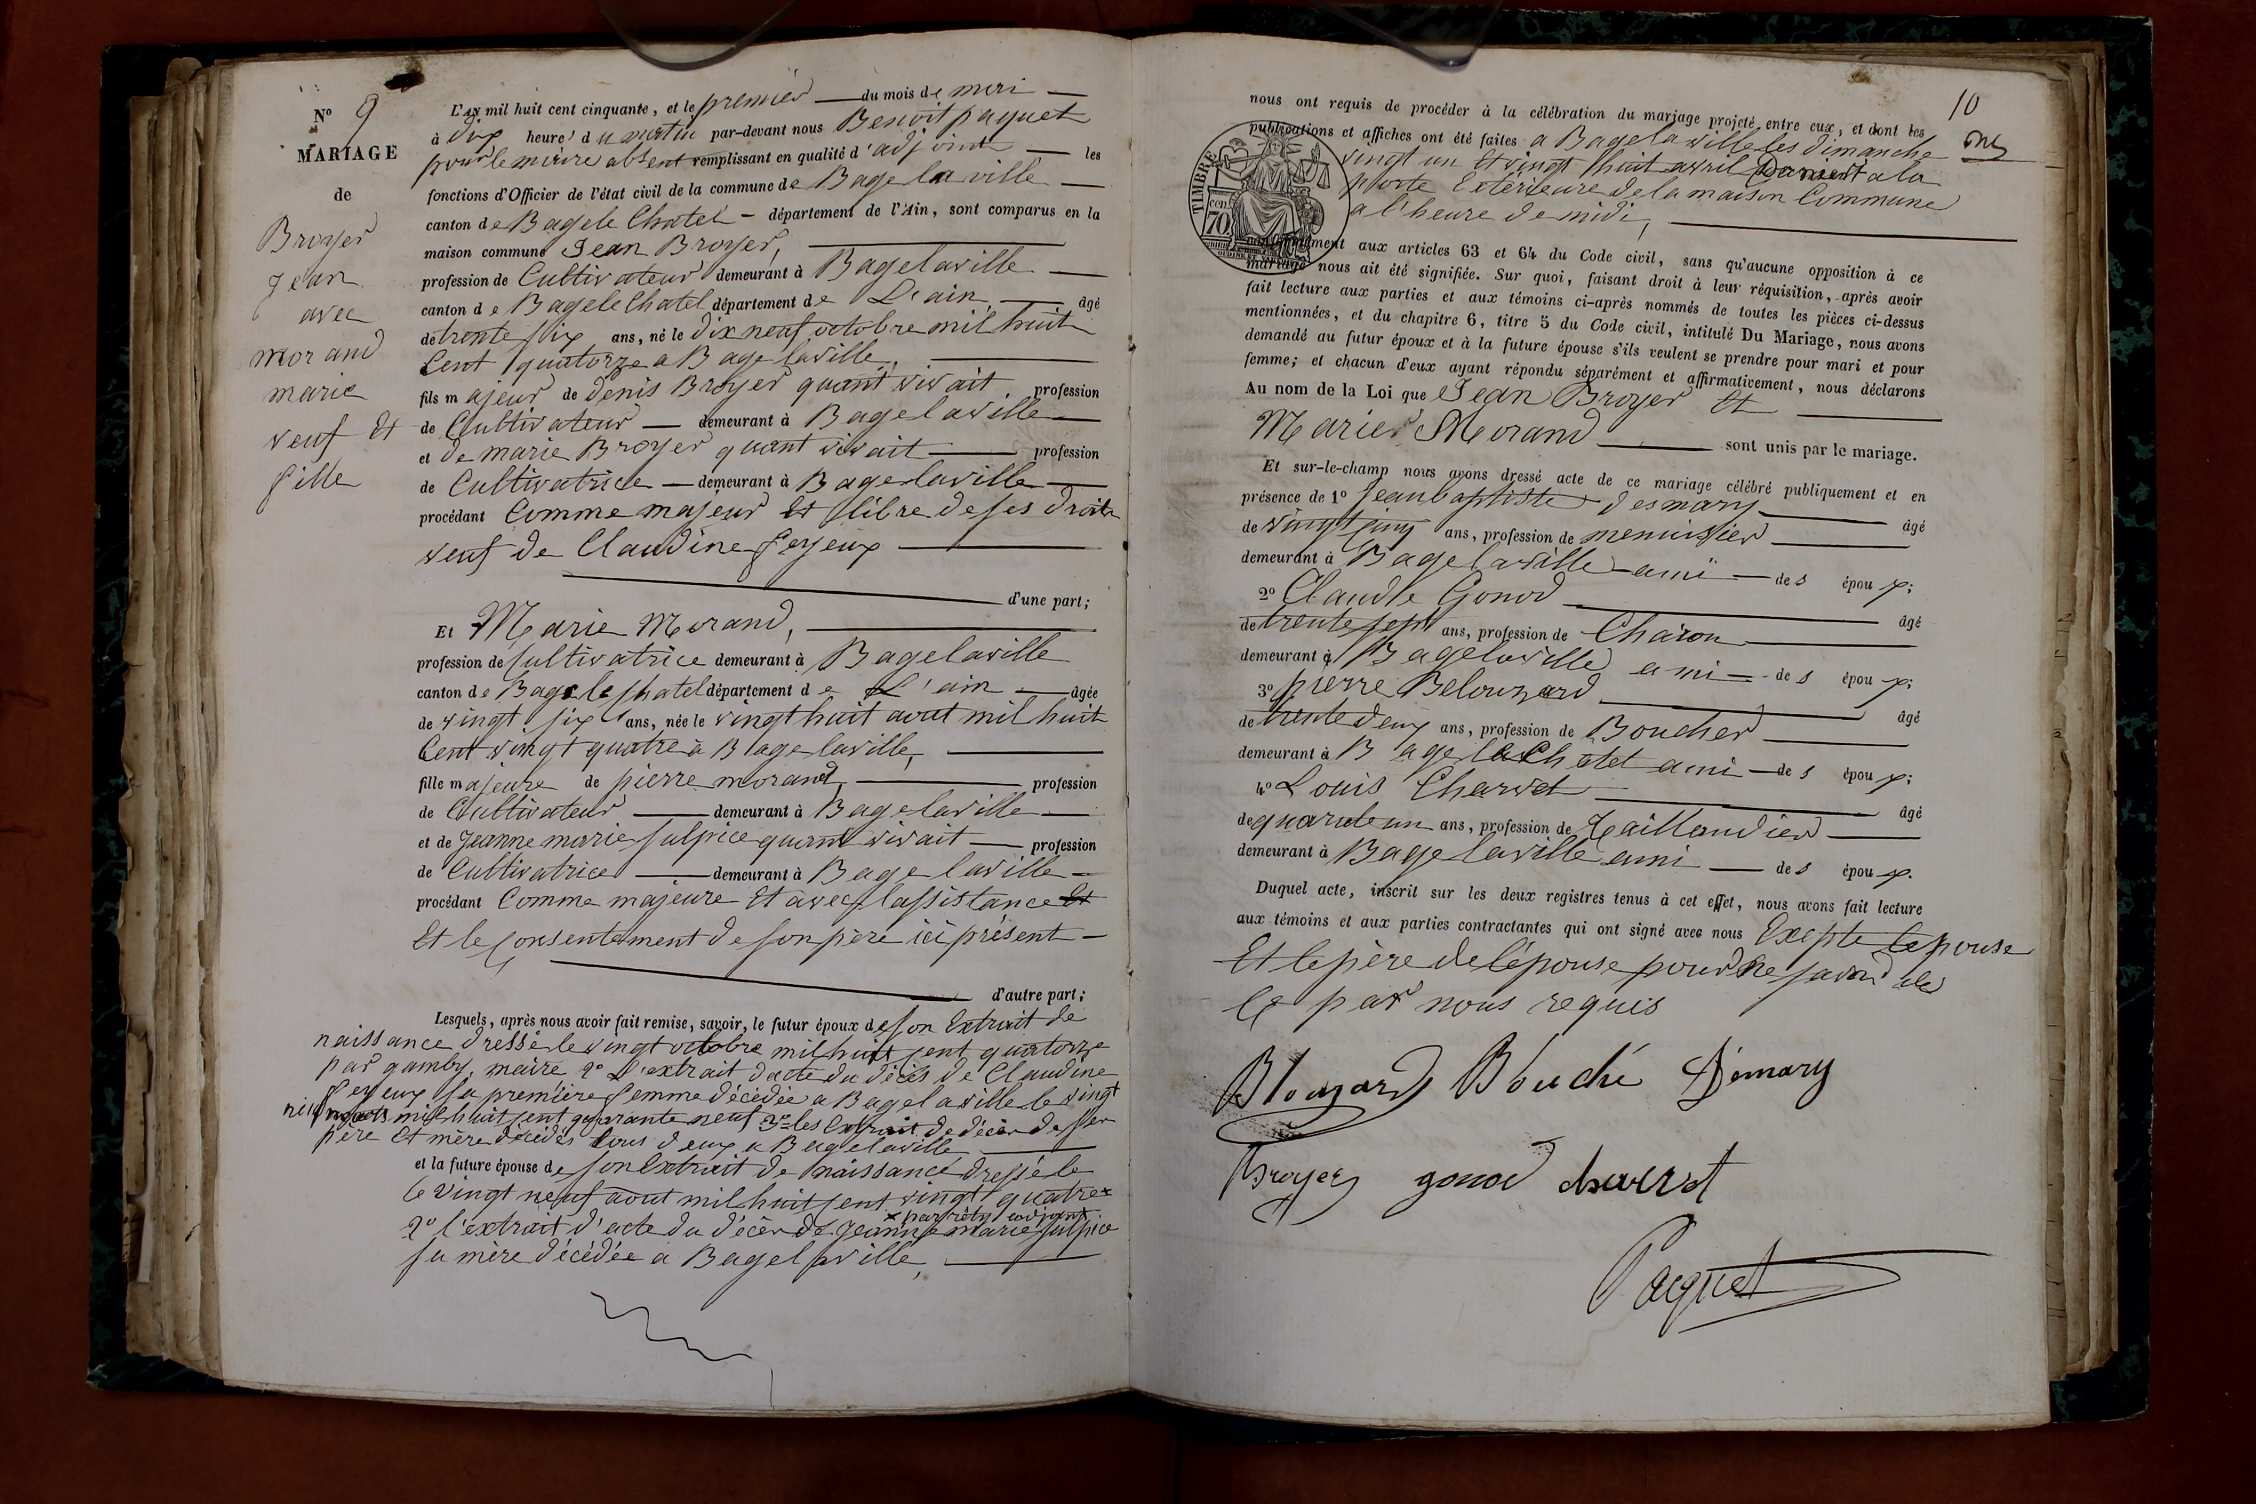 N° 9
MARIAGE
de
Broyer
Jean
avec
morand
marie
veuf Et
fille
L'AN mil huit cent cinquante, et le premier du mois de mai
à dix heures du matin par-devant nous Benoit paquet
pour le maire absent remplissant en qualité d'adjoint les
fonctions d'Officier de l'état civil de la commune de Bagelaville
canton de Bagele Chatel département de l'Ain, sont comparus en la
maison commune Jean Broyer,
profession de Cultivateur demeurant à Bagelaville
canton de Bagele Chatel département de L'ain âgé
de trente six ans, né le dix neuf octobre mil huit
Cent quatorze a Bagelaville,
fils majeur de denis Broyer quant vivait profession
de Cultivateur demeurant à Bagelaville
et de marie Broyer quant vivait profession
de Cultivatrice demeurant à Bagelaville
procédant Comme majeur Et libre de ses droits
veuf de Claudine feyeux
d'une part;
Et Marie Morand,
profession de Cultivatrice demeurant à Bagelaville
canton de Bagele Chatel département de L'ain âgée
de vingt six ans, née le vingt huit aout mil huit
Cent vingt quatre à Bagelaville,
fille majeure de pierre morand, profession
de Cultivateur demeurant à Bagelaville
et de Jeanne marie sulpice quant vivait profession
de Cultivatrice demeurant à Bagelaville
procédant Comme majeure Et avec lassistance Et
Et le Consentement de son père ici présent
d'autre part;
Lesquels, après nous avoir fait remise, savoir, le futur époux de son Extrait de
naissance dressé le vingt octobre mil huit cent quatorze
par gamby, maire 2° L'extrait dacte du décès de Claudine
feyeux sa première femme décédée a Bagelaville le vingt
mil huit cent quarante neuf 3° les Extrait de décès de ses
père Et mère décédés tous deux a Bagelaville
et la future épouse de son Extrait de naissance dressé le
le vingt neuf aout mil huit cent vingt quatre x
x par adjoint
2° l'extrait d'acte du décès de Jeanne marie sulpice
sa mère décédée a Bagelaville,
10
nous ont requis de procéder à la célébration du mariage projeté entre eux, et dont les
publications et affiches ont été faites a Bagelaville les dimanche
vingt un Et vingt huit avril devant a la
porte Extérieure de la maison Commune
a l'heure de midi,
TIMBRE
70 cen.
conformément aux articles 63 et 64 du Code civil, sans qu'aucune opposition à ce
mariage nous ait été signifiée. Sur quoi, faisant droit à leur réquisition, après avoir
fait lecture aux parties et aux témoins ci-après nommés de toutes les pièces ci-dessus
mentionnées, et du chapitre 6, titre 5 du Code civil, intitulé Du Mariage, nous avons
demandé au futur époux et à la future épouse s'ils veulent se prendre pour mari et pour
femme; et chacun d'eux ayant répondu séparément et affirmativement, nous déclarons
Au nom de la Loi que Jean Broyer Et
Marie Morand sont unis par le mariage.
Et sur-le-champ nous avons dressé acte de ce mariage célébré publiquement et en
présence de 1° Jean baptiste desmary âgé
de vingt cinq ans, profession de menuisier
demeurant à Bagelaville ami des époux;
2° Claude Gonod âgé
de trente sept ans, profession de Charon
demeurant à Bagelaville ami des époux;
3° pierre Belouzard âgé
de trente deux ans, profession de Boucher
demeurant à Bagelechatel ami des époux;
4° Louis Charvet âgé
de quarante un ans, profession de Taillandier
demeurant à Bagelaville ami des époux.
Duquel acte, inscrit sur les deux registres tenus à cet effet, nous avons fait lecture
aux témoins et aux parties contractantes qui ont signé avec nous Exepte lepouse
Et le père de l'épouse pour ne savoir de
Ce par nous requis
Blouzard Bouché Démary
Broyer gonod charvet
Paquet